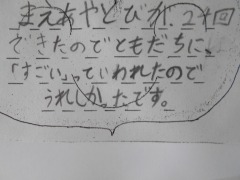 まえあやとびが、24回
できたのでともだちに、
「すごい」っていわれたので
うれしかったです。